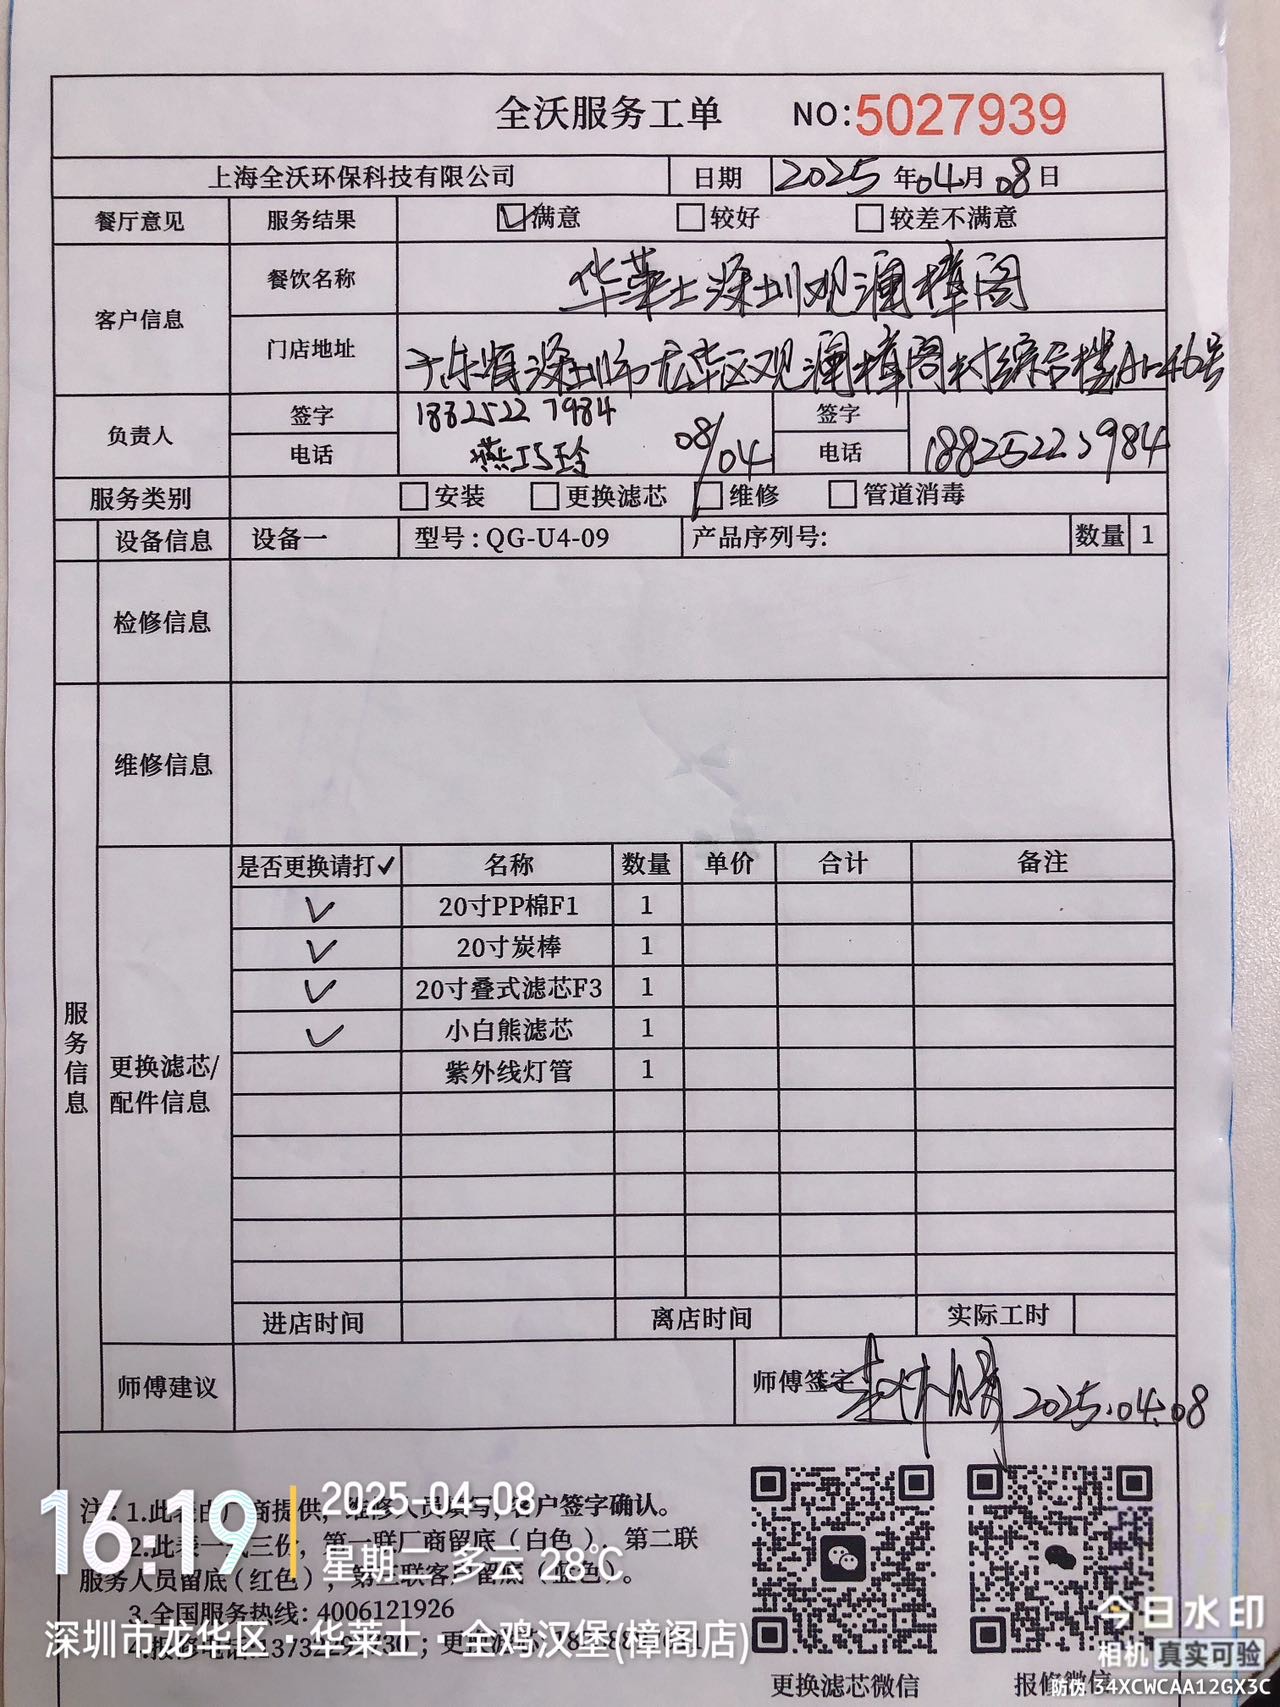 全沃服务工单 NO:5027939
上海全沃环保科技有限公司 日期 2025年04月08日
餐厅意见 服务结果 ☑满意 □较好 □较差不满意
客户信息 餐饮名称 华莱士深圳观澜樟阁
门店地址 广东省深圳市龙华区观澜樟阁村综合楼A1-46号
负责人 签字 18825227984 签字
电话 燕巧玲 08/04 电话 18825227984
服务类别 □安装 □更换滤芯 □维修 □管道消毒
设备信息 设备一 型号:QG-U4-09 产品序列号: 数量 1
检修信息
维修信息
服务信息
更换滤芯/
配件信息
是否更换请打✓ 名称 数量 单价 合计 备注
✓ 20寸PP棉F1 1
✓ 20寸炭棒 1
✓ 20寸叠式滤芯F3 1
✓ 小白熊滤芯 1
紫外线灯管 1
进店时间 离店时间 实际工时
师傅建议 师傅签字 2025.04.08
注:1.此表由厂商提供,维修人员填写,客户签字确认。
2.此表一式三份,第一联厂商留底(白色),第二联
服务人员留底(红色),第三联客户留底(蓝色)。
3.全国服务热线:4006121926
4.报修电话
更换滤芯微信 报修微信
16:19
2025-04-08
星期二 多云 28℃
深圳市龙华区·华莱士·全鸡汉堡(樟阁店)
今日水印
相机 真实可验
防伪 34XCWCAA12GX3C